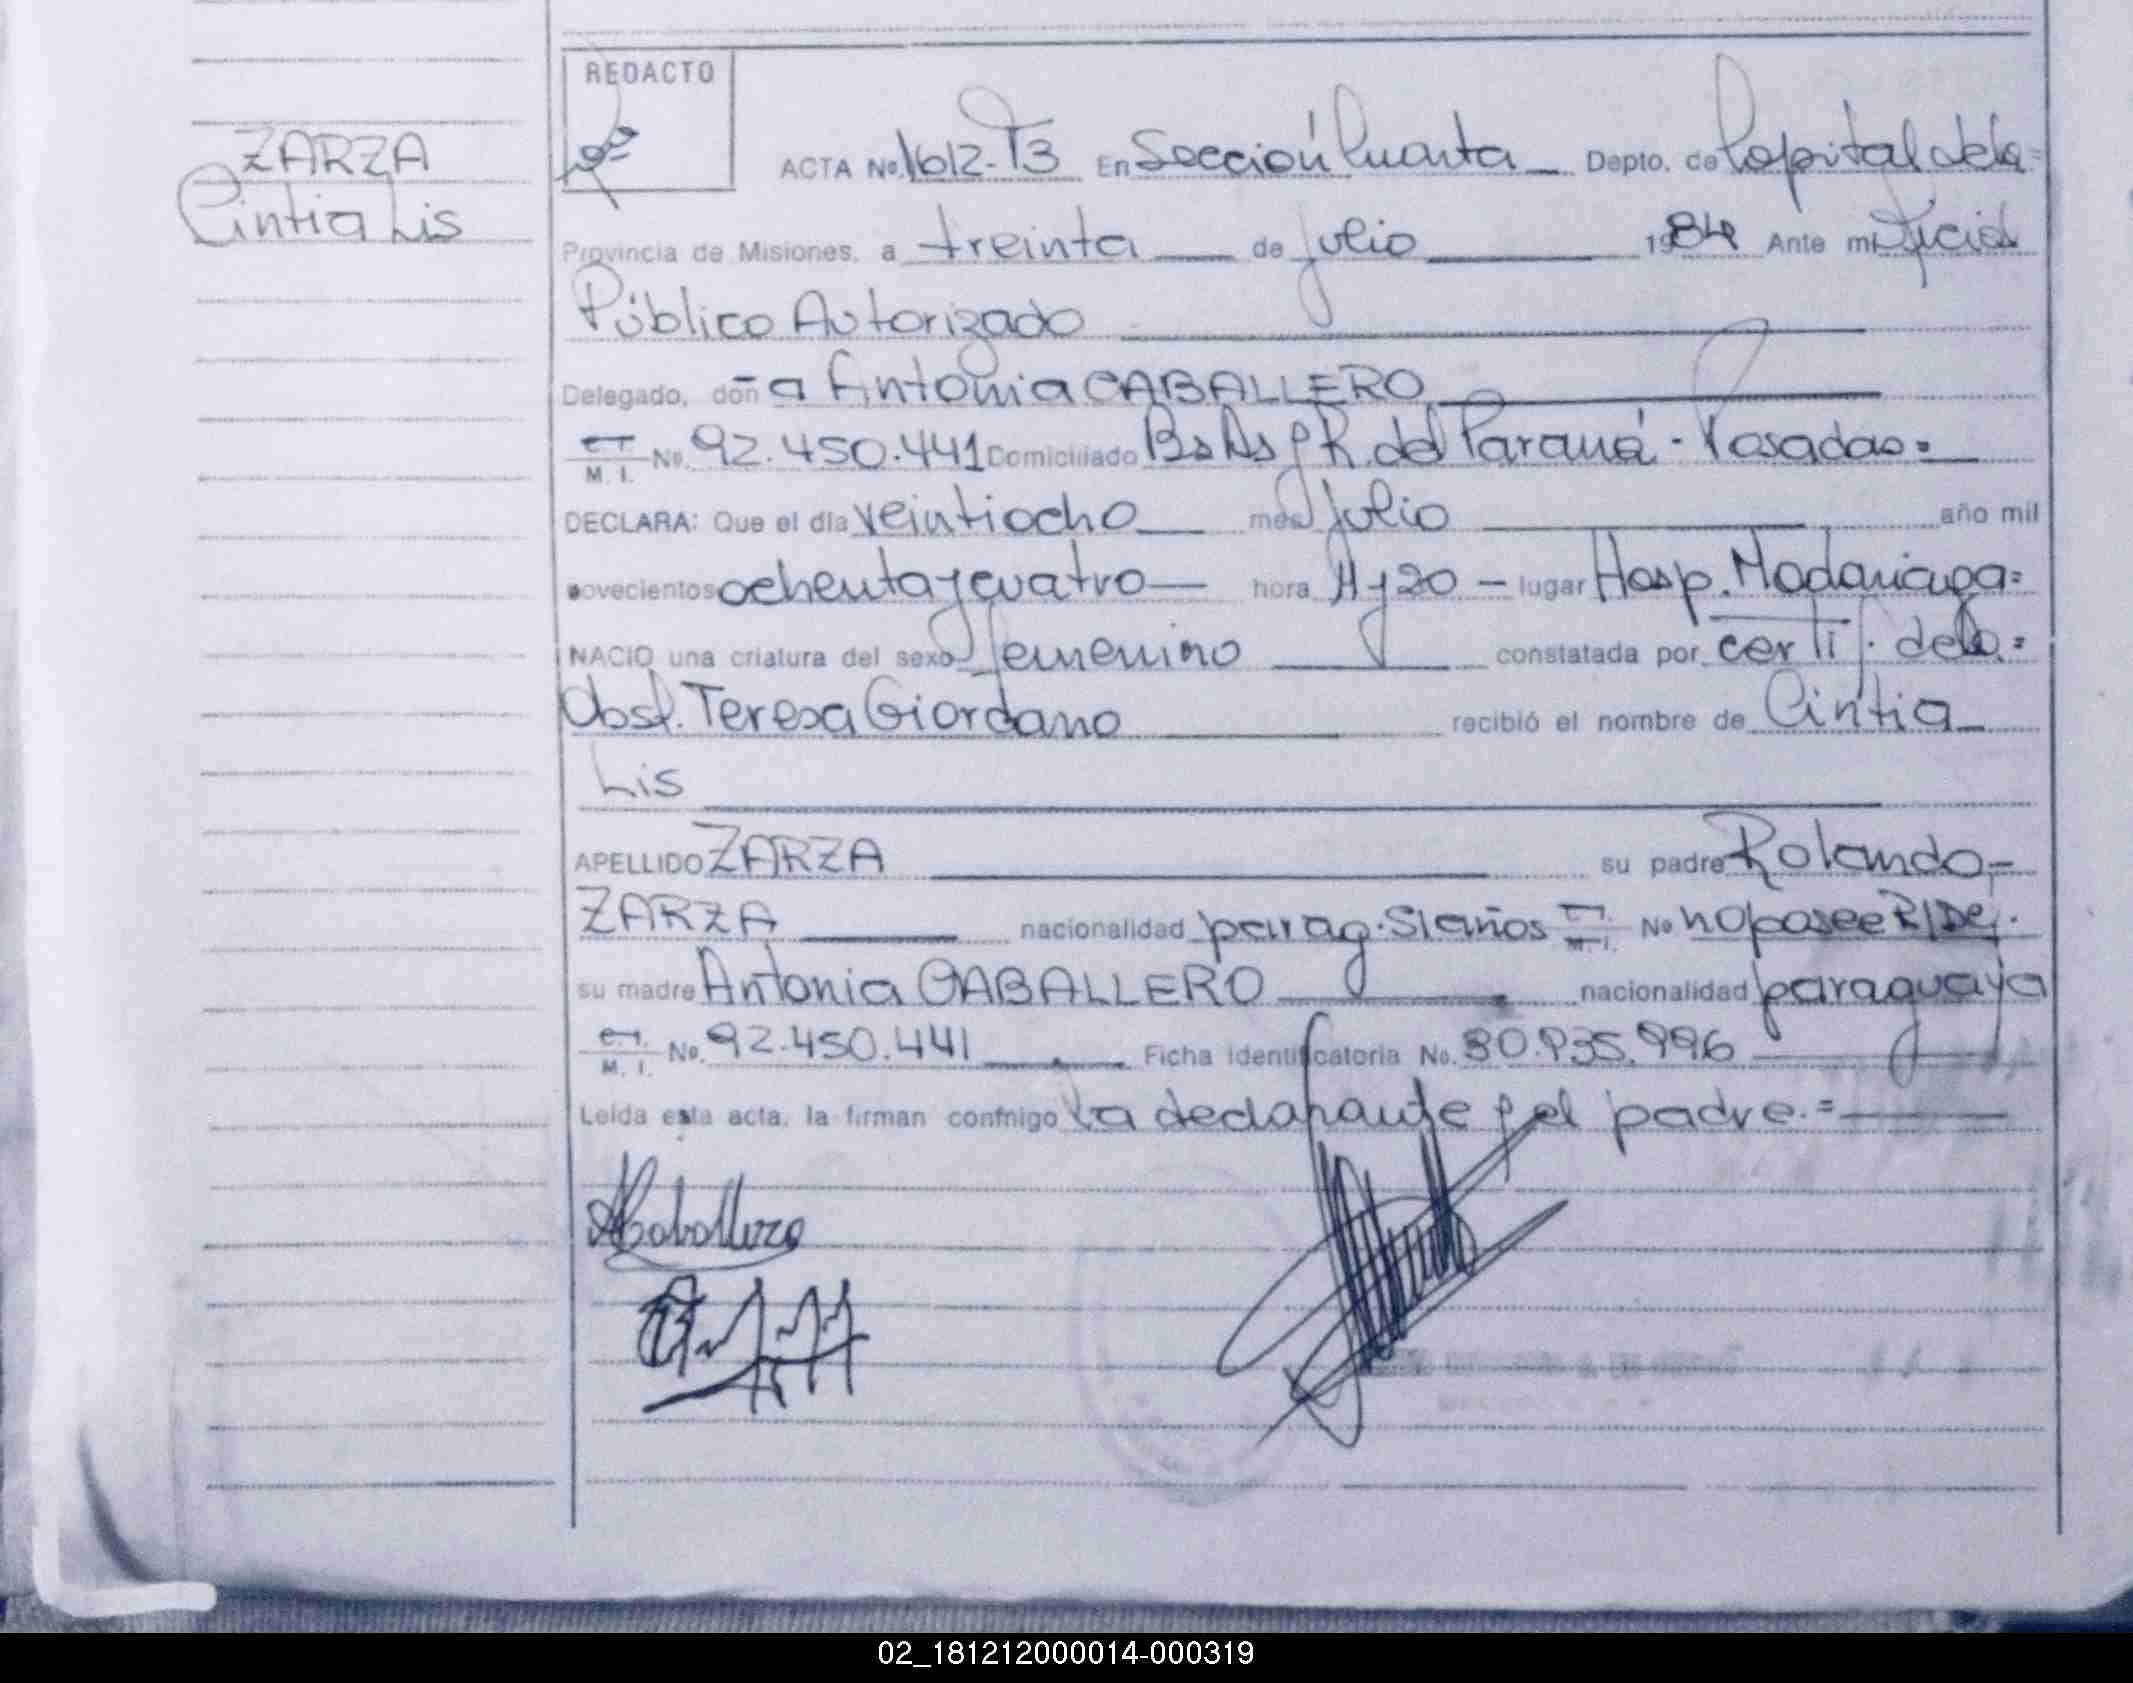 REDACTO
ZARZA
Cintia Lis
ACTA No. 1612-T3 En Sección Cuarta Depto. de Capital de la=
Provincia de Misiones, a treinta de julio 1984 Ante mi Oficial
Público Autorizado
Delegado, don-a Antonia CABALLERO
C.I. M. I. No. 92.450.441 Domiciliado Bs As y R. del Paraná - Posadas=
DECLARA: Que el día veintiocho mes julio año mil
novecientos ochenta y cuatro hora 11 y 20 - lugar Hosp. Madariaga=
NACIO una criatura del sexo femenino constatada por certif. de la=
Obst. Teresa Giordano recibió el nombre de Cintia
Lis
APELLIDO ZARZA su padre Rolando-
ZARZA nacionalidad parag. 51 años C.I. M. I. No no posee
su madre Antonia CABALLERO nacionalidad paraguaya
C.I. M. I. No. 92.450.441 Ficha identificatoria No. 30.935.996
Leída esta acta, la firman conmigo la declarante y el padre.=
ACaballero
02_181212000014-000319